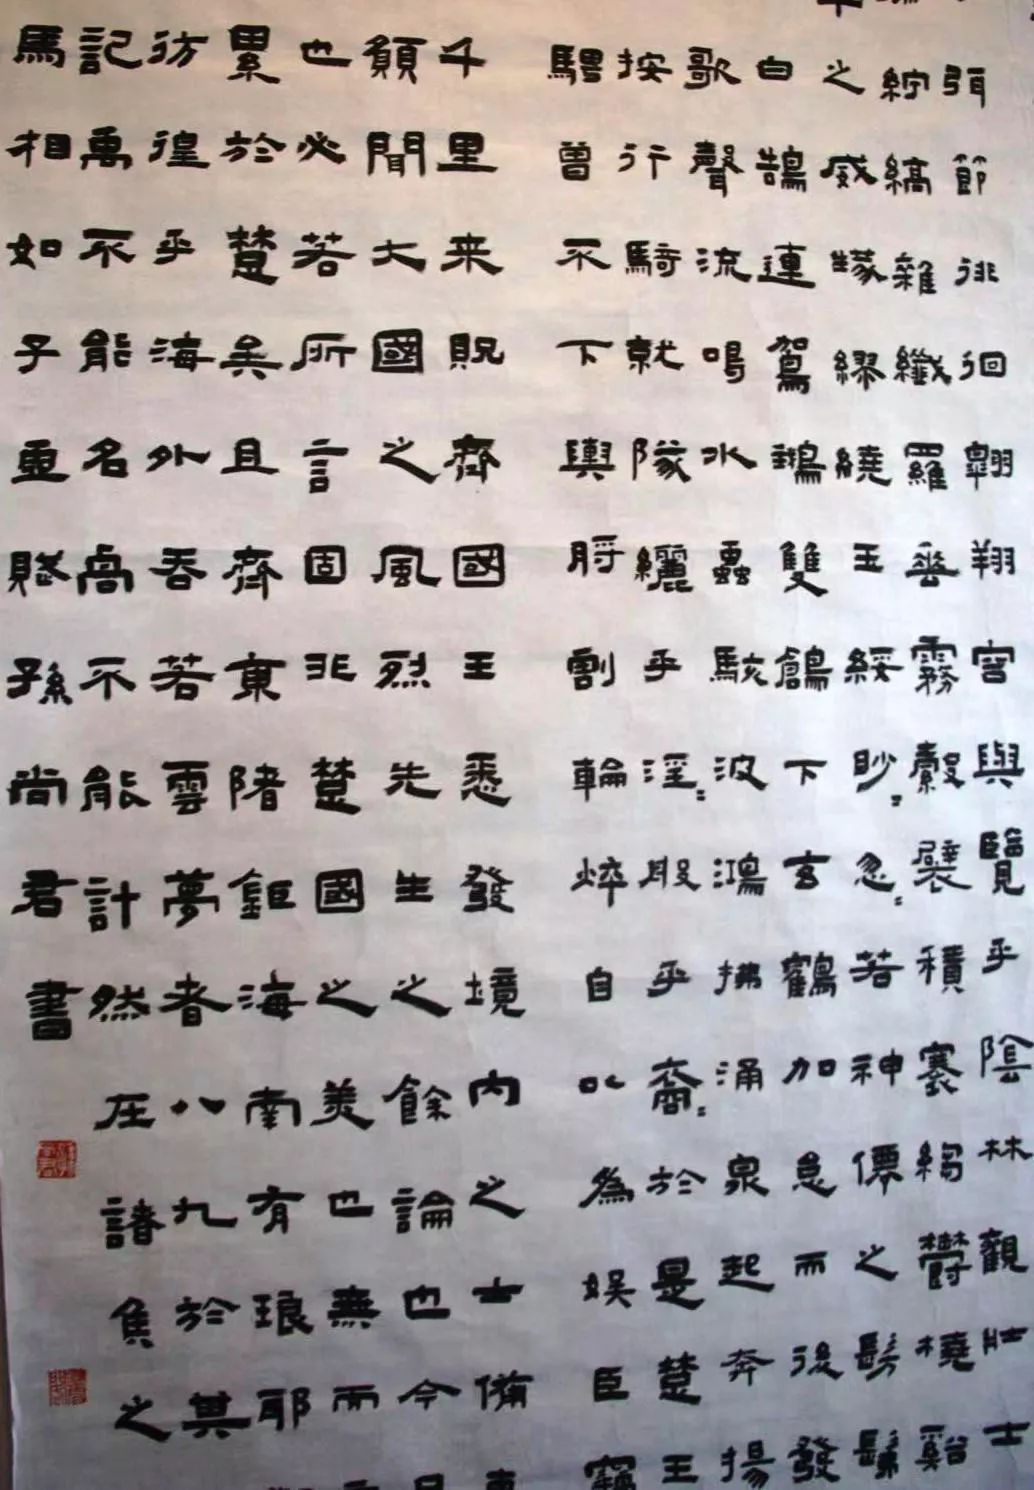 弭節徘徊翱翔容與覽乎陰林觀壯士
紵縞雜纖羅垂霧縠襞積褰縐鬱橈谿
之威蕤繆繞玉綏眇〻忽〻若神僊之髣髴
白鵠連駕鵝雙鶬下玄鶴加怠而後發
歌聲流鳴水蟲駭波鴻沸涌泉起奔揚
按行騎就隊纚乎淫〻般乎裔〻於是楚王
騁曾不下輿脟割輪焠自以為娛臣竊
千里来貺齊國王悉發境內之士備
願聞大國之風烈先生之餘論也今
也必若所言固非楚國之美也無而
累於楚矣且齊東陼鉅海南有琅邪
彷徨乎海外吞若雲夢者八九於其
記禹不能名卨不能計然在諸侯之
馬相如子虛賦孫尚君書